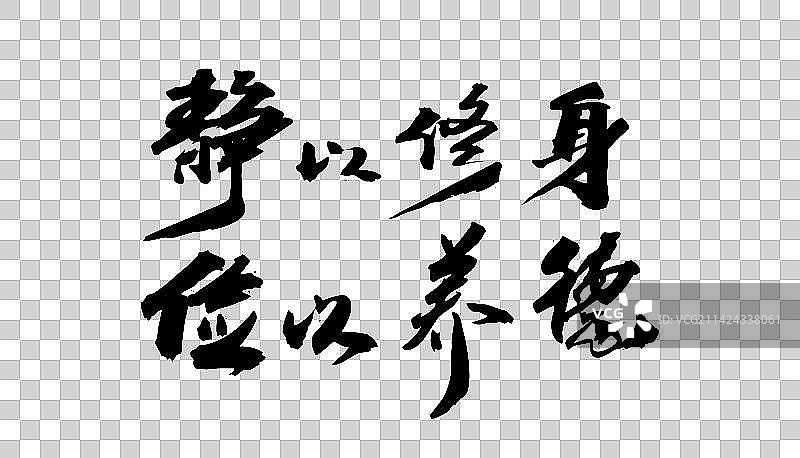 静以修身
俭以养德
VCG ID:VCG211424338061